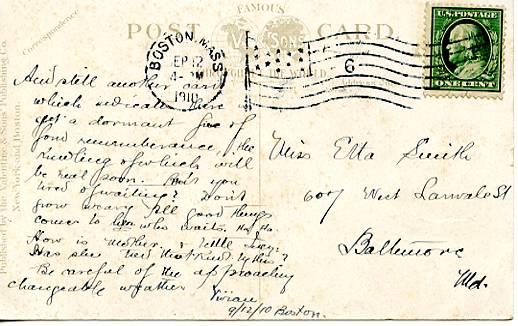 FAMOUS
POST CARD
Correspondence
VALENTINE & SONS
Published by The Valentine & Sons' Publishing Co.
New York and Boston.
BOSTON, MASS.
SEP 12
4- PM
1910
6
U.S. POSTAGE
ONE CENT
And still another card
which indicate there
yet a dormant fire of
fond remembrance, the
kindling of which will
be real soon. Aren't you
tired of waiting? Don't
grow weary, "all good things
comes to him who waits. Ha, Ha.
How is Mother & little
Has she
Be careful of the approaching
changeable weather
Vivian
9/12/10 Boston.
Miss Etta Smith
607 West Lanvale St
Baltimore
Md.